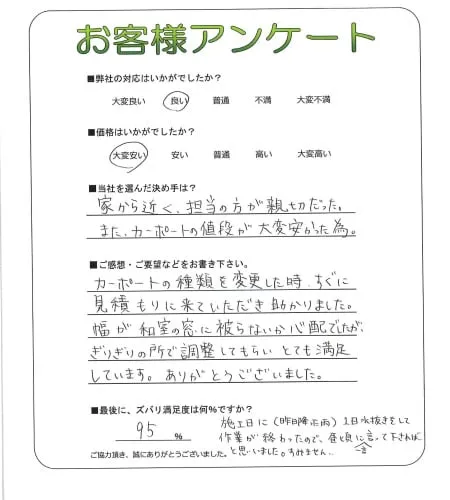 お客様アンケート
■弊社の対応はいかがでしたか？
大変良い 良い 普通 不満 大変不満
■価格はいかがでしたか？
大変安い 安い 普通 高い 大変高い
■当社を選んだ決め手は？
家から近く、担当の方が親切だった。
また、カーポートの値段が大変安かった為。
■ご感想・ご要望などをお書き下さい。
カーポートの種類を変更した時、すぐに
見積もりに来ていただき助かりました。
幅が和室の窓に被らないか心配でしたが、
ぎりぎりの所で調整してもらいとても満足
しています。ありがとうございました。
■最後に、ズバリ満足度は何%ですか？
95 %
施工日に(昨日降雨)1日水抜きをして
作業が終わったので、昼頃に一言言って下されば
と思いました。すみません…
ご協力頂き、誠にありがとうございました。